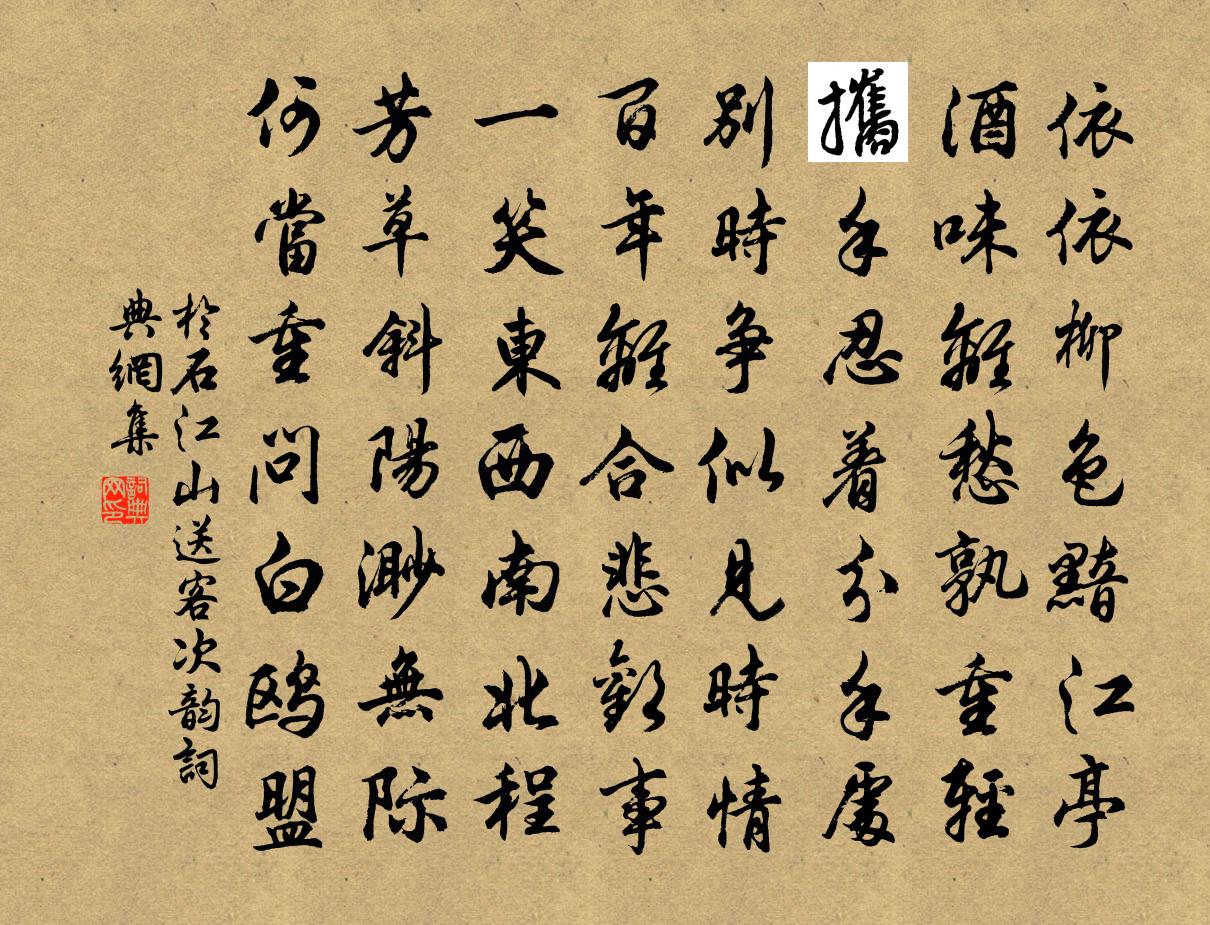 依依柳色黯江亭
酒味離愁孰重輕
攜手忍着分手處
別時爭似見時情
百年離合悲歡事
一笑東西南北程
芳草斜陽渺無際
何當重問白鷗盟
於石江山送客次韵詞
典網集
詞典
网印